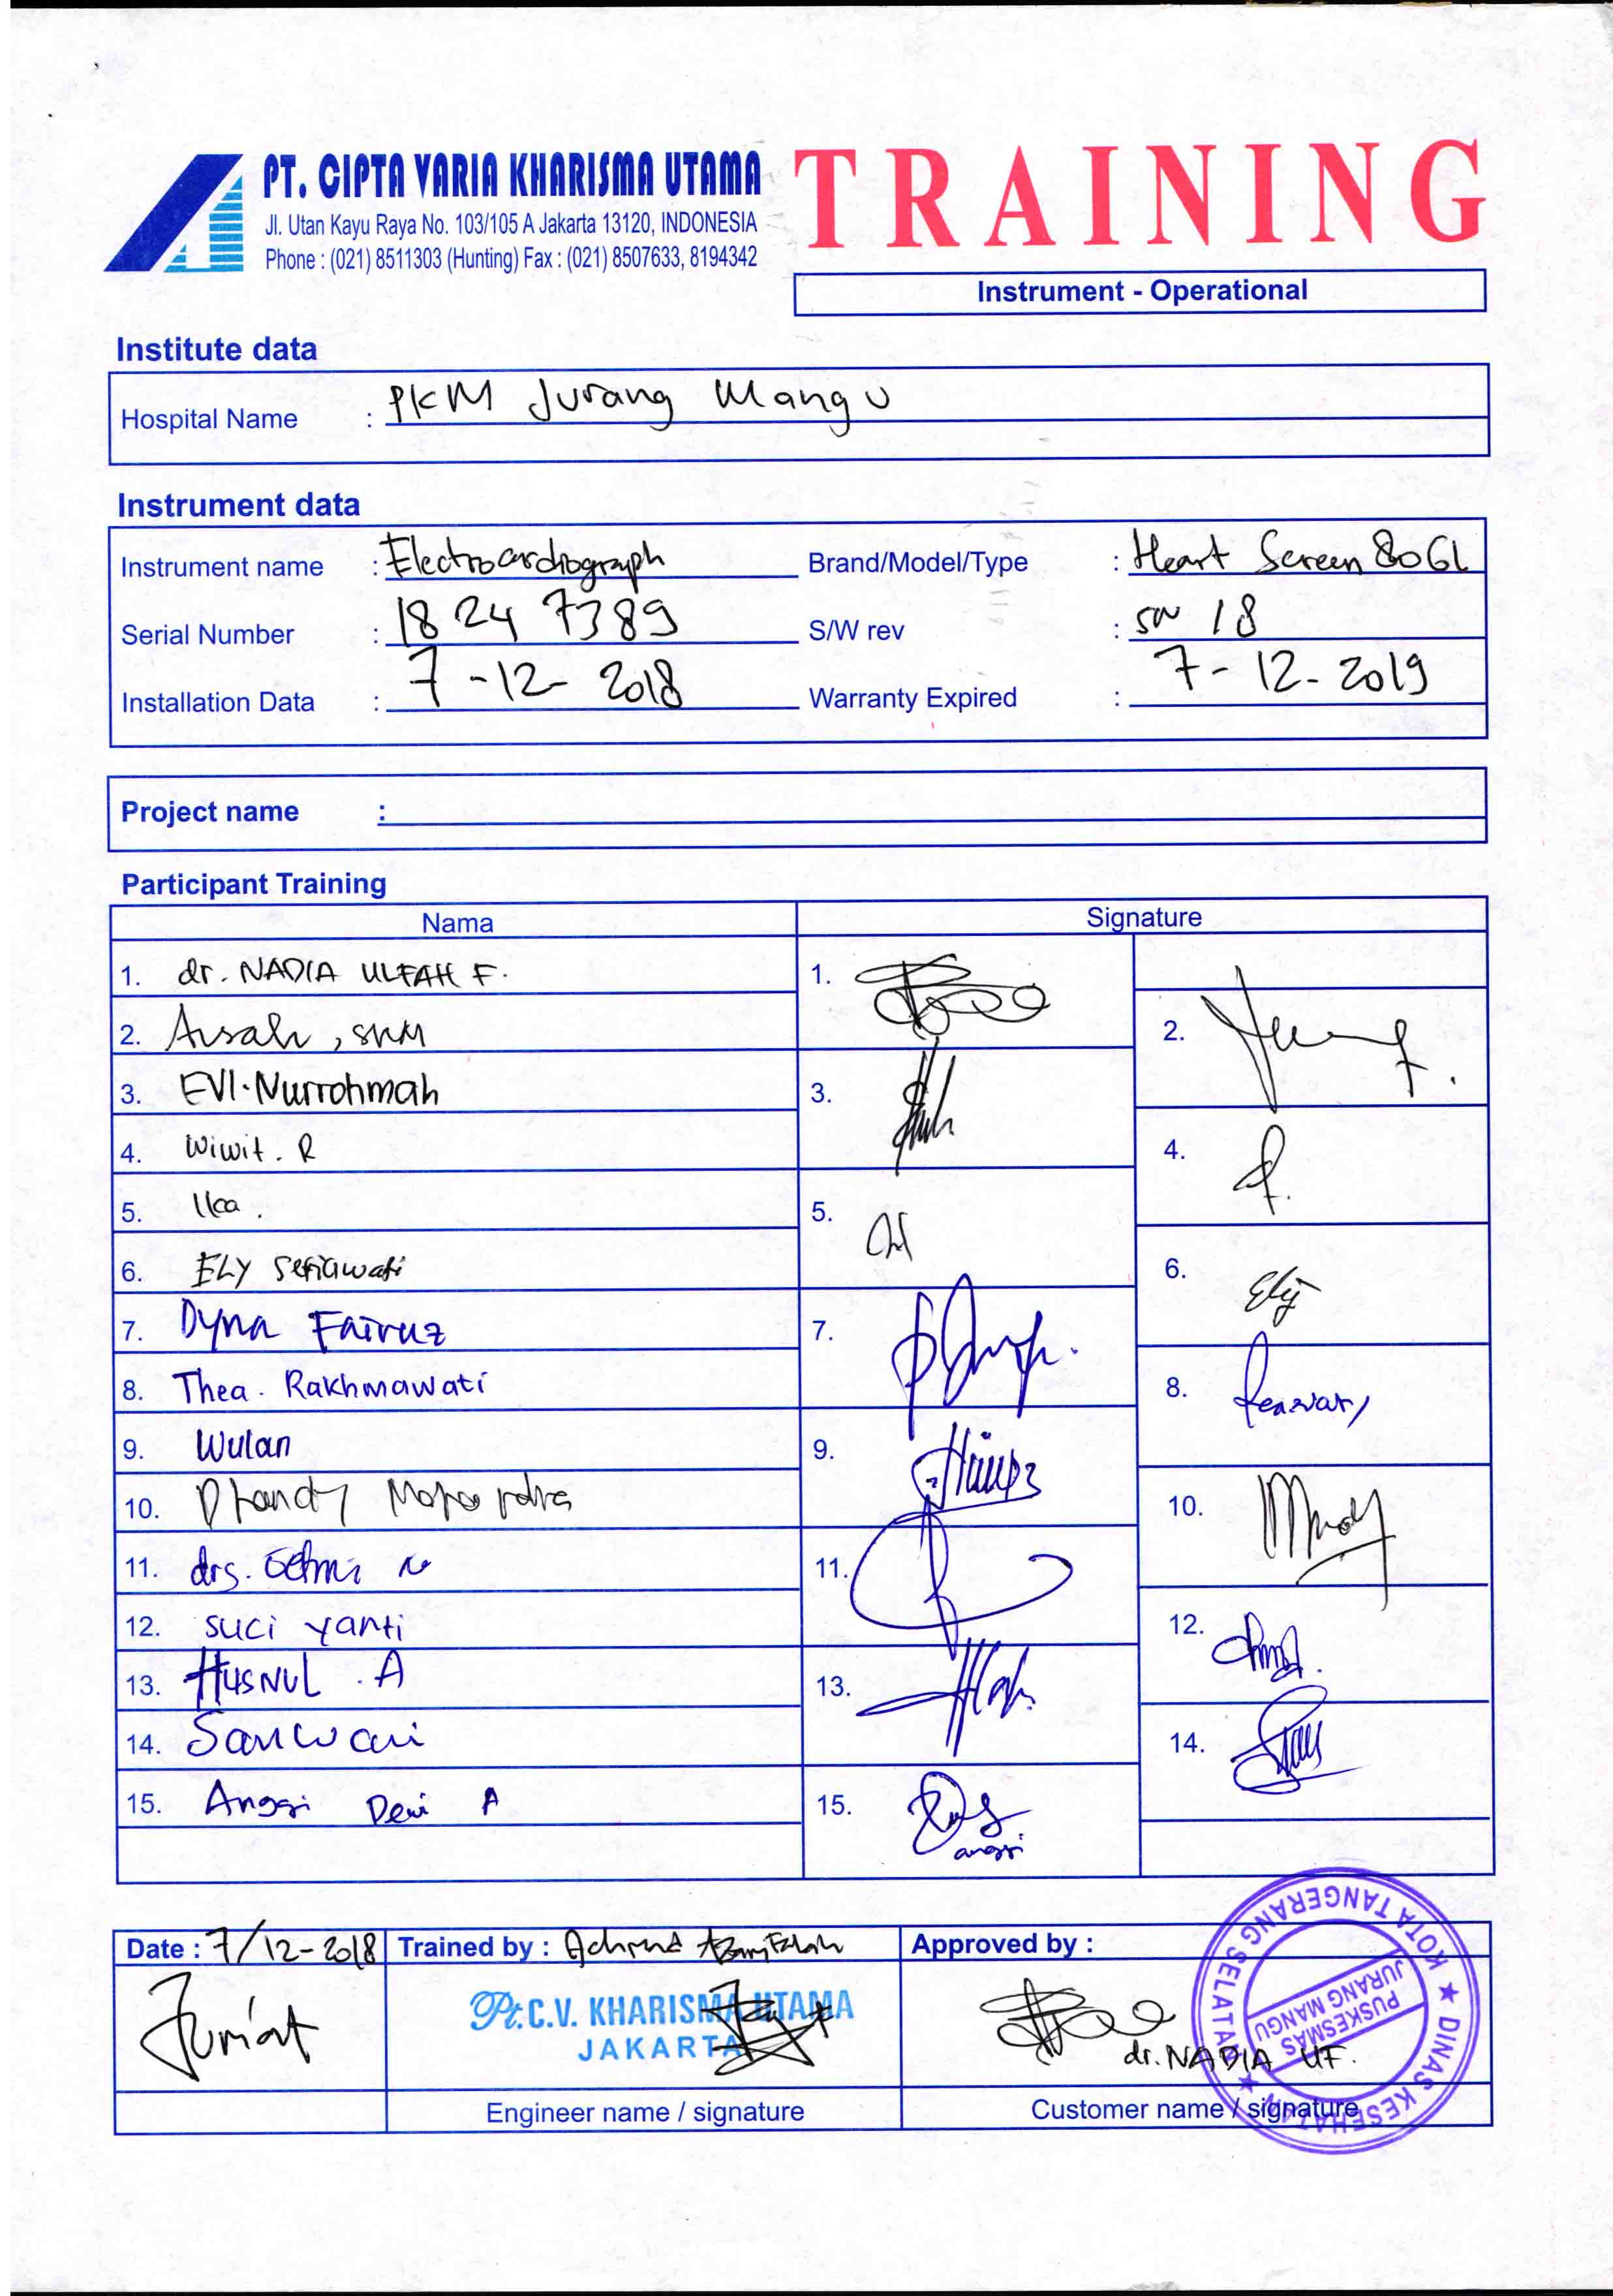 PT. CIPTA VARIA KHARISMA UTAMA
Jl. Utan Kayu Raya No. 103/105 A Jakarta 13120, INDONESIA
Phone : (021) 8511303 (Hunting) Fax : (021) 8507633, 8194342
TRAINING
Instrument - Operational
Institute data
Hospital Name : PKM Jurang Mangu
Instrument data
Instrument name : Electrocardiograph Brand/Model/Type : Heart Screen 80GL
Serial Number : 18 24 7389 S/W rev : SN 18
Installation Data : 7-12-2018 Warranty Expired : 7-12-2019
Project name :
Participant Training
Nama Signature
1. dr. NADIA ULFAH F. 1.
2. Aisah, SKM 2.
3. EVI.Nurrohmah 3.
4. Wiwit. R 4.
5. Ika. 5.
6. ELY Setiawati 6. Ely
7. Dyna Fairuz 7.
8. Thea. Rakhmawati 8.
9. Wulan 9.
10. 10.
11. drg. 11.
12. suci yanti 12.
13. HUSNUL .A 13.
14. Sanwani 14.
15. Anggi Dewi A 15. anggi
Date : 7/12-2018 Trained by : Approved by :
Pt.C.V. KHARISMA UTAMA
JAKARTA
dr. NADIA UF.
Engineer name / signature Customer name / signature
DINAS KESEHATAN ★ KOTA TANGERANG SELATAN ★
PUSKESMAS
JURANG MANGU